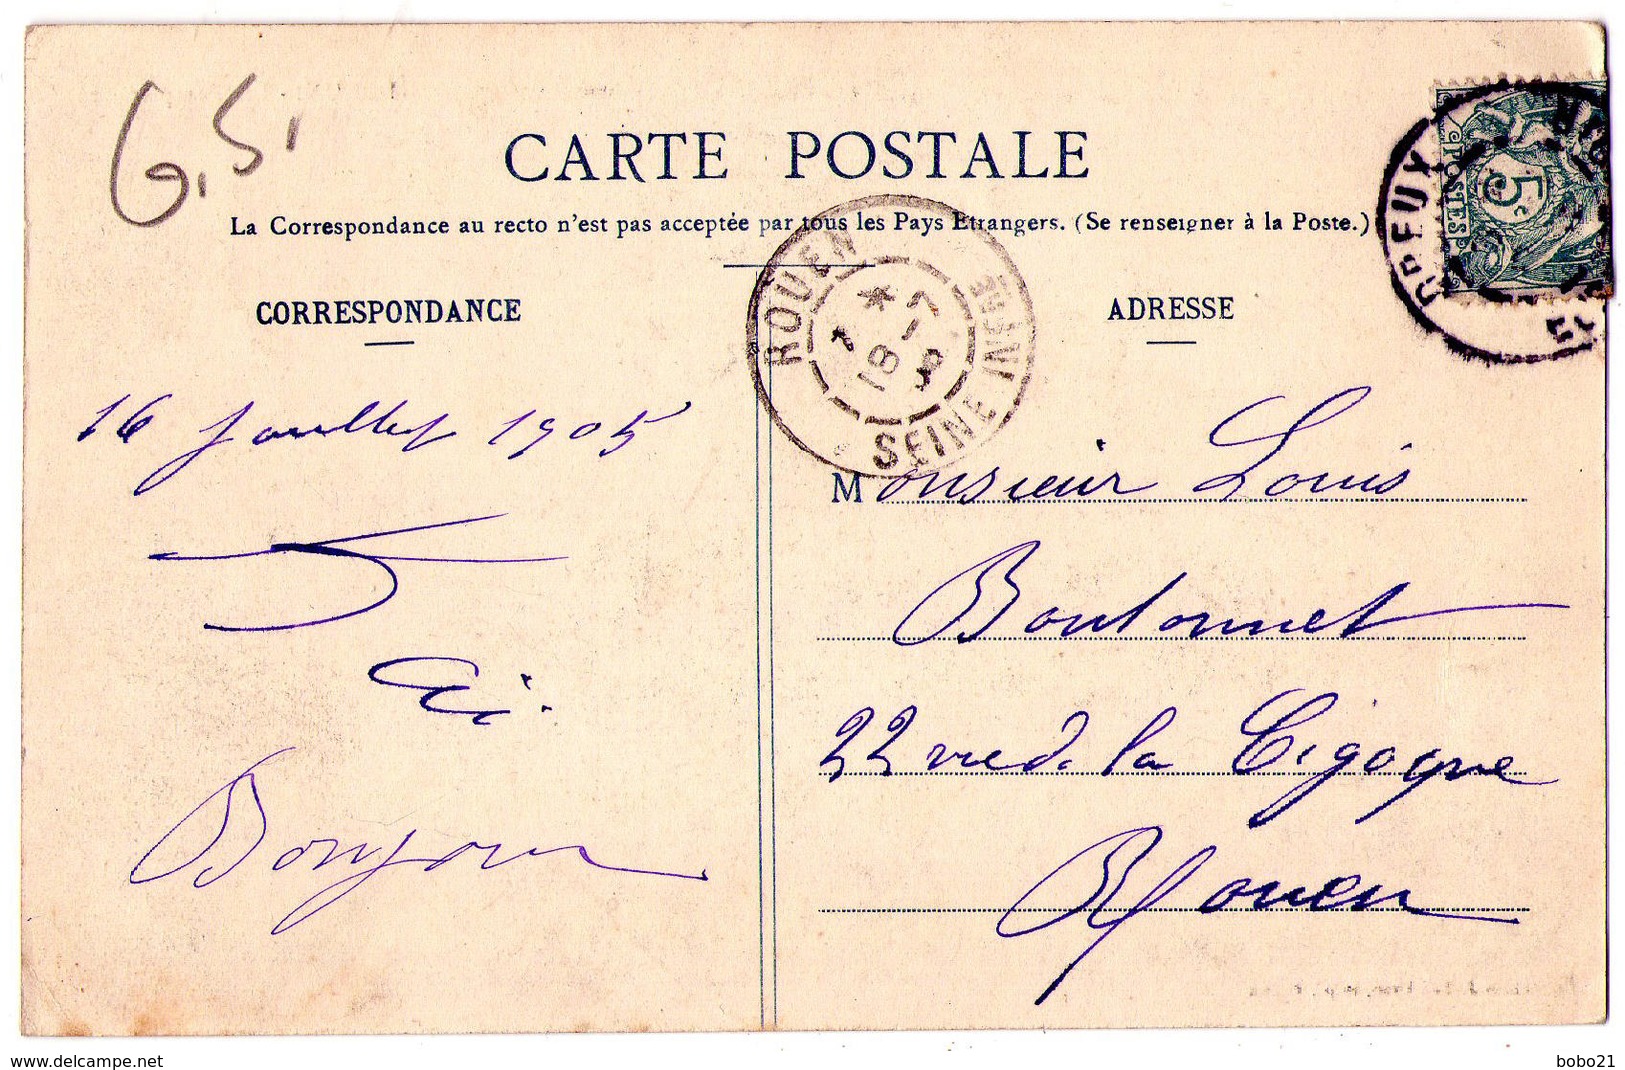 G,5
CARTE POSTALE
La Correspondance au recto n'est pas acceptée par tous les Pays Etrangers. (Se renseigner à la Poste.)
CORRESPONDANCE
ADRESSE
POSTES
5c
ROUEN
18
SEINE INFRE
16 Juillet 1905
Monsieur Louis
Boutonnet
22 rue de la Cigogne
Rouen
Bonjour
www.delcampe.net
bobo21